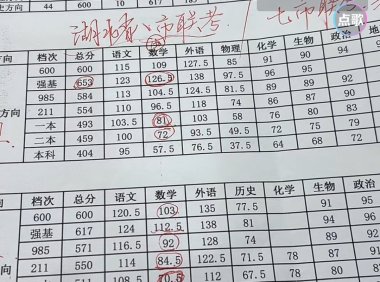 史方向 44 600 10 617 187
湖北省八市联考
七市联考
点歌
方向 档次 总分 语文 数学 外语 物理 化学 生物 政治 地
600 600 115 109 127.5 85 91 90 94
强基 653 123 126.5 138 97.5 96 95
985 584 113 104.5 124.5 81.5 89 89 92
211 554 110 96.5 118 74 86 87 90
一本 493 103.5 81 103 58 76 80 83
二本 459 100 72 93.5 49.5 72 75 79
本科 404 95 57.5 76.5 37.5 64 68 72
方向 档次 总分 语文 数学 外语 历史 化学 生物 政治
600 600 120.5 103 135 77.5 91 95
强基 617 124 112.5 138 81 94 96
985 571 116.5 92 128 74 89 92
211 550 114 84.5 122.5 71.5 78 87 91
108.5 70.5 112 67.5 78 80